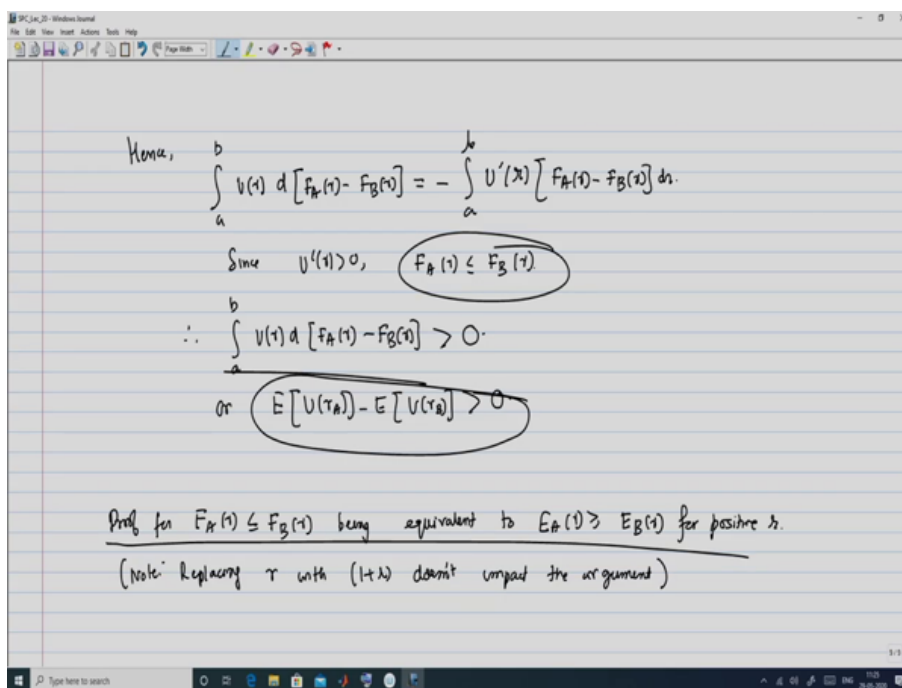 SPC_Lec_20 - Windows Journal
File Edit View Insert Actions Tools Help
Page Width
Hence,
∫_a^b U(r) d[F_A(r) - F_B(r)] = - ∫_a^b U'(r) [F_A(r) - F_B(r)] dr.
Since U'(r) > 0, F_A(r) ≤ F_B(r).
∴ ∫_a^b U(r) d[F_A(r) - F_B(r)] > 0.
or E[U(r_A)] - E[U(r_B)] > 0
Proof for F_A(r) ≤ F_B(r) being equivalent to E_A(r) ≥ E_B(r) for positive r.
(Note: Replacing r with (1+r) doesn't impact the argument)
5/5
Type here to search
ENG
11:25
29-05-2020